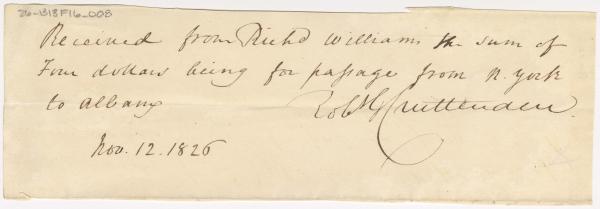 26-B13F16-008
Received from Richd Williams the sum of
Four dollars being for passage from N. York
to Albany Robt G Cruttenden.
Nov. 12. 1826